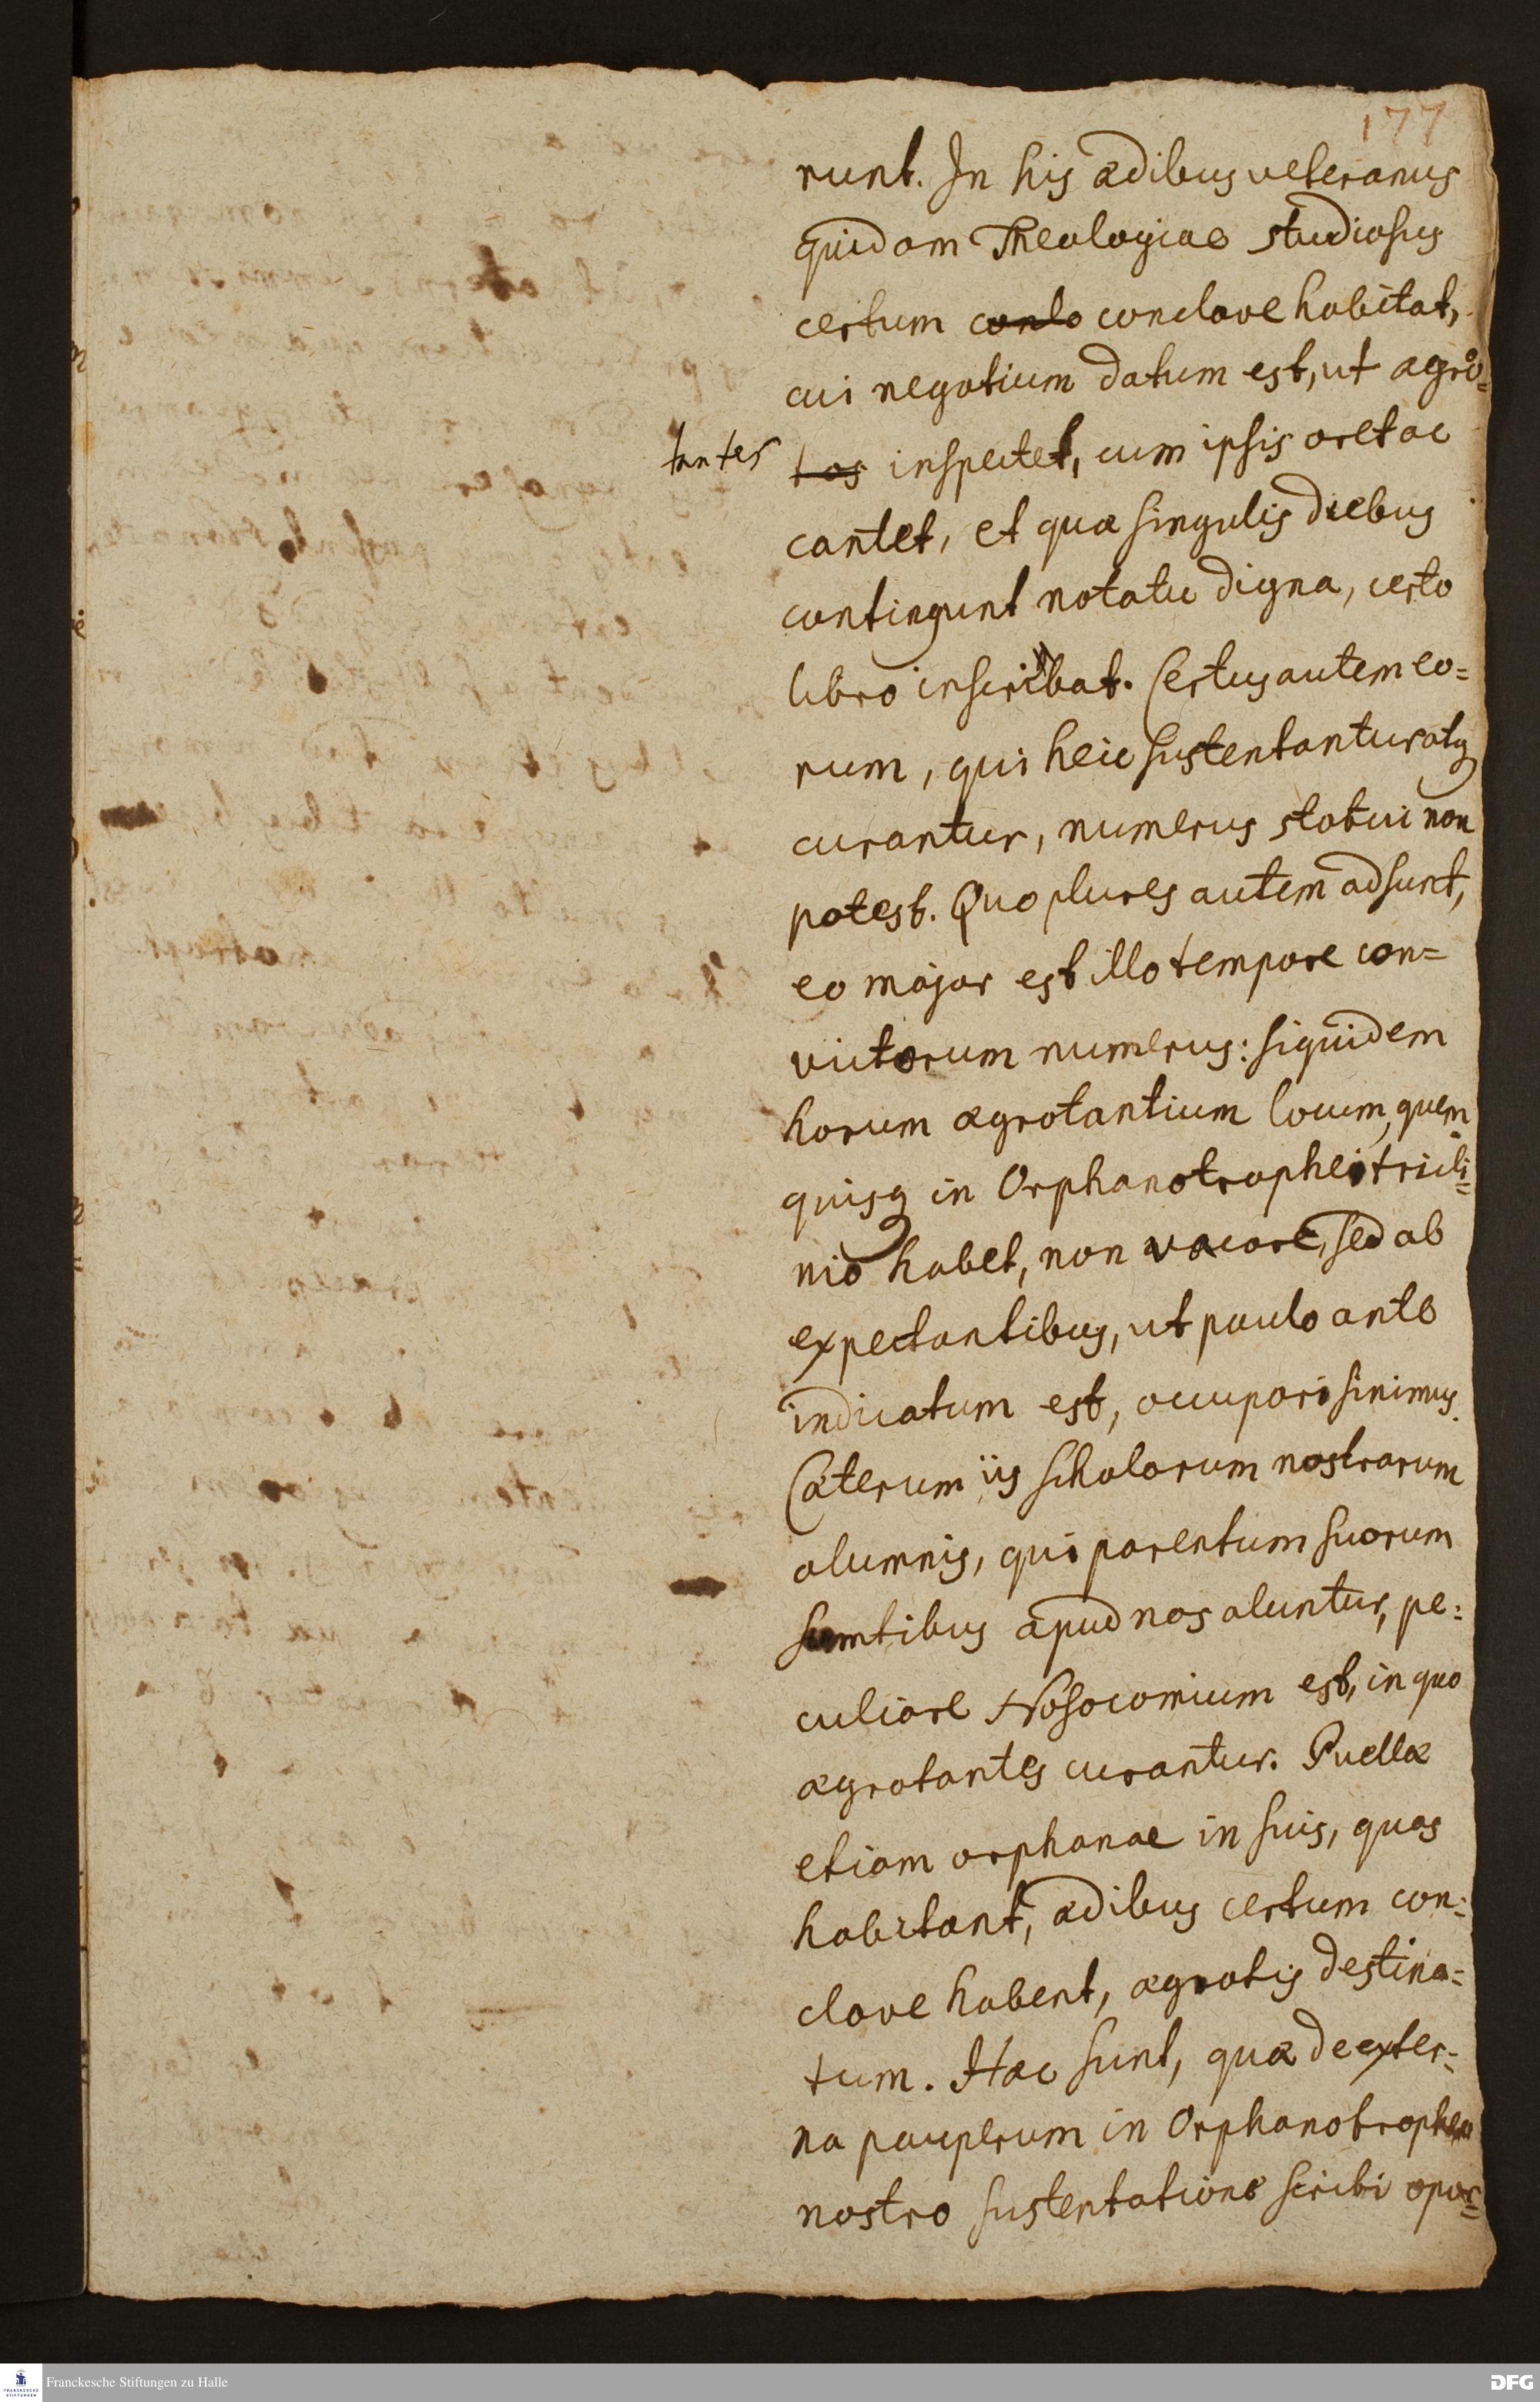 177
runt. In his ædibus veteranus
quidam Theologiae studiosus
certum conla conclave habitat,
cui negotium datum est, ut ægro=
tantes
tos inspectet, cum ipsis oret ac
cantet, et quæ singulis diebus
contingunt notatu digna, certo
libro inscribat. Certus autem eo=
rum, qui heic sustentantur atq
curantur, numerus statui non
potest. Quo plures autem adsunt,
eo major est illo tempore con=
victorum numerus: siquidem
horum ægrotantium locum, quem
quisq in Orphanotrophei tricli=
nio habet, non vacare, sed ab
expectantibus, ut paulo ante
indicatum est, occupari sinimus.
Cæterum iis scholarum nostrarum
alumnis, qui parentum suorum
sumtibus apud nos aluntur, pe=
culiare Nosocomium est, in quo
ægrotantes curantur. Puellæ
etiam orphanae in suis, quas
habitant, ædibus certum con=
clave habent, ægrotis destina=
tum. Hæc sunt, quæ de exter=
na pauperum in Orphanotropheo
nostro sustentatione scribi opor=
Franckesche Stiftungen zu Halle
FRANCKESCHE STIFTUNGEN
DFG